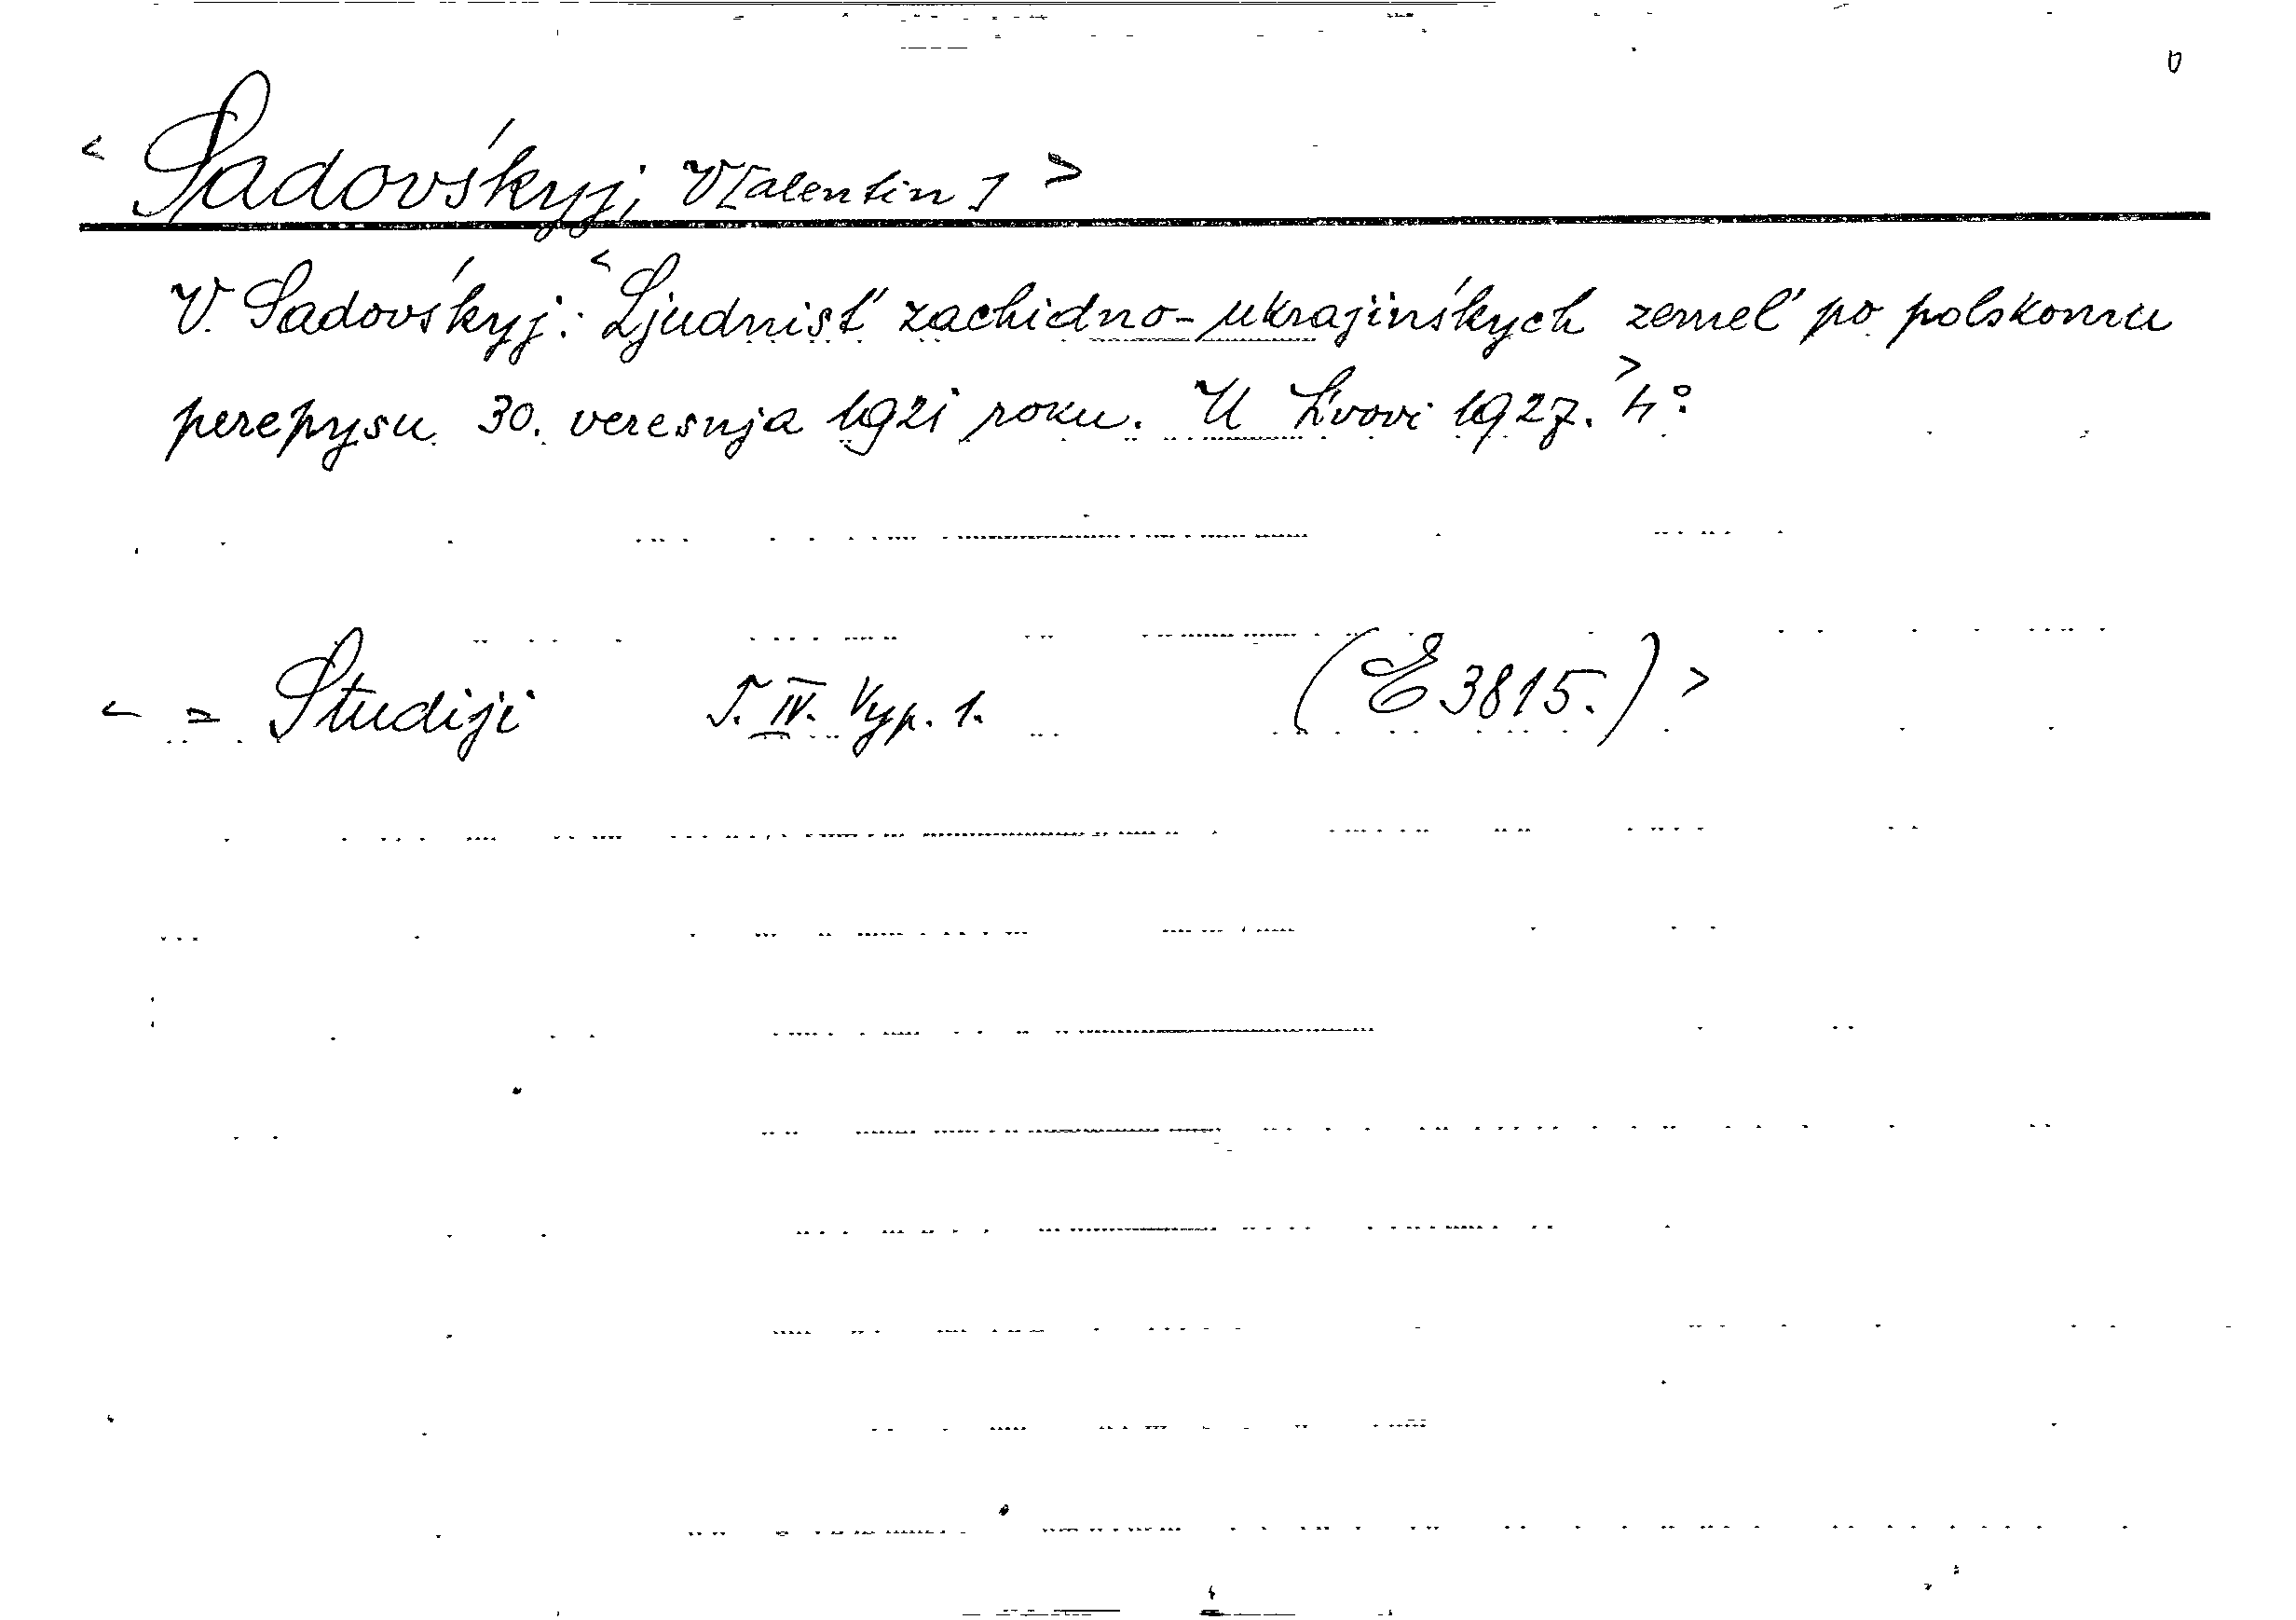 < Sadovśkyj, V[alentin] >
V. Sadovśkyj: < Ljudnisť zachidno-ukrajinśkych zemeľ po polskomu
perepysu 30. veresnja 1921 roku. U Ĺvovi 1927. > 4°
< = Studiji T. IV. Vyp. 1. (E 3815.) >